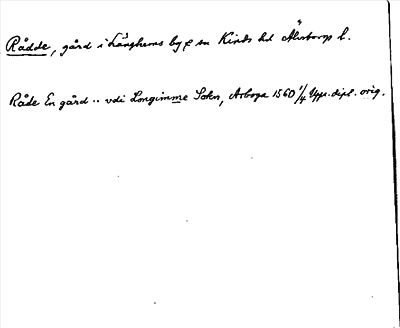 Rådde, gård i Länghems by o sn Kinds hd Älvsborgs l.
Råde En gård .. vdi Longimme Sokn, Arboga 1560 1/4 Upps. dipl. orig.